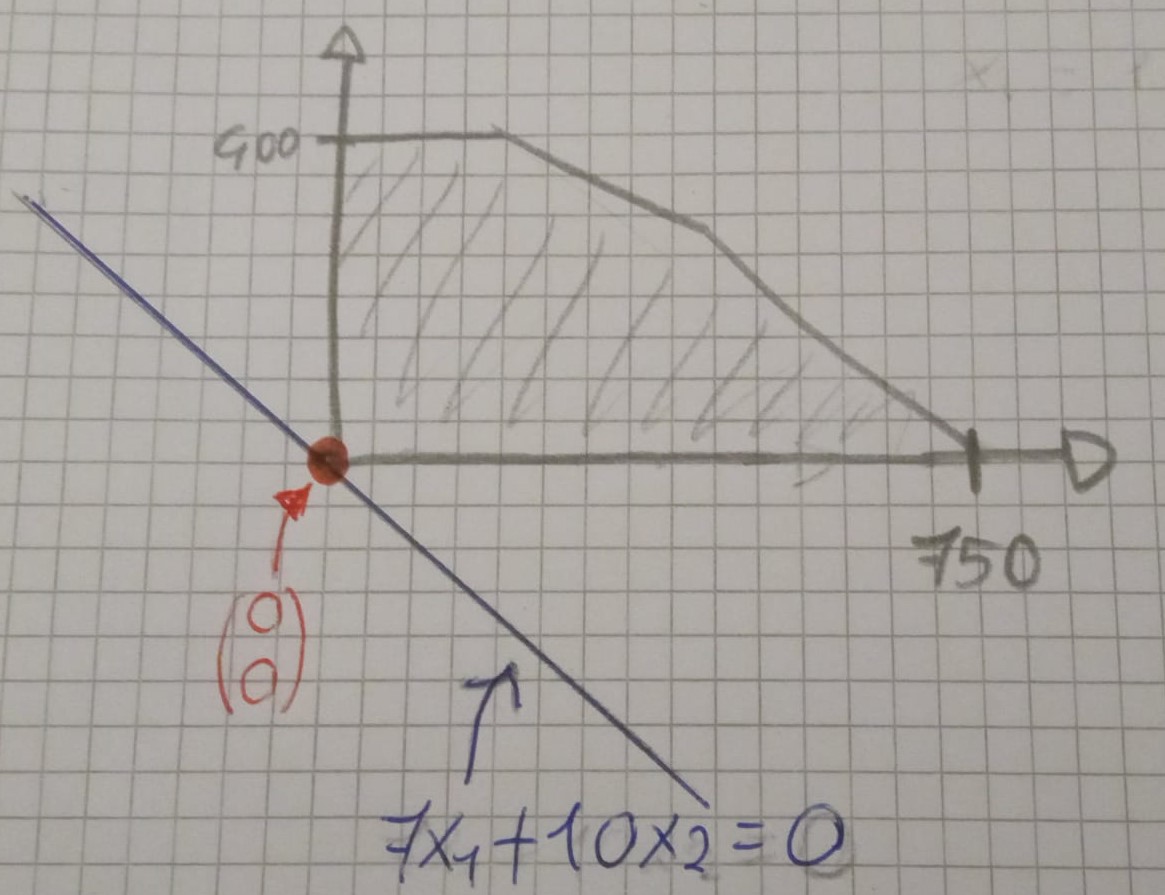 400
750
0
0
7x₁+10x₂=0